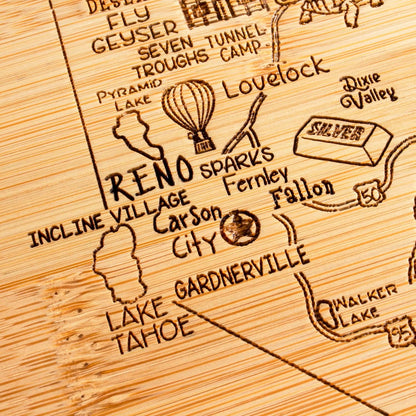 DESERT
FLY
GEYSER
SEVEN
TROUGHS
TUNNEL
CAMP
Lovelock
PYRAMID
LAKE
Dixie
Valley
SILVER
RENO
SPARKS
Fernley
Fallon
50
INCLINE VILLAGE
Carson
City
GARDNERVILLE
LAKE
TAHOE
WALKER
LAKE
95